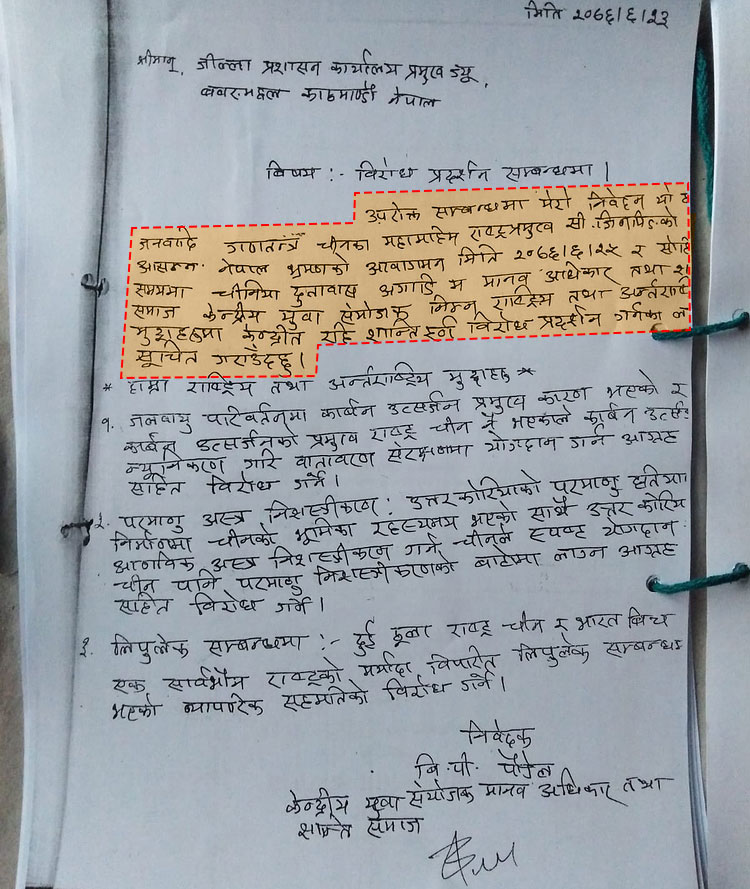 मिति २०७६।६।२३
श्रीमान्, जील्ला प्रशासन कार्यालय प्रमुख ज्यू,
बबरमहल काठमाण्डौ नेपाल
विषय :- विरोध प्रदर्शन सम्बन्धमा ।
उपरोक्त सम्बन्धमा मेरो निवेदन यो
जनवादी गणतन्त्र चीनका महामहिम राष्ट्रप्रमुख सी. जिनपिङको
आसन्न नेपाल भ्रमणको आवागमन मिति २०७६।६।२५ र
समयमा चीनिया दुतावास अगाडि म मानव अधिकार तथा
समाज केन्द्रीय युवा संयोजक निम्न राष्ट्रिय तथा अर्न्तराष्ट्रि
मुद्दाहरुमा केन्द्रीत रहि शान्तिपूर्ण विरोध प्रदर्शन गर्नका
सूचित गराउँदछु ।
* हाम्रा राष्ट्रिय तथा अर्न्तराष्ट्रिय मुद्दाहरु *
१. जलवायु परिवर्तनमा कार्बन उत्सर्जन प्रमुख कारण भएको र
कार्बन उत्सर्जनको प्रमुख राष्ट्र चीन नै भएकाले कार्बन उत्सर्जन
न्यूनिकरण गरि वातावरण संरक्षणमा योगदान गर्न आग्रह
सहित विरोध गर्ने ।
२. परमाणु अस्त्र निशस्त्रीकरण : उत्तर कोरियाको परमाणु हतिया
निर्माणमा चीनको भूमिका रहस्यमय भएको साथै उत्तर कोरिया
आणविक अस्त्र निशस्त्रीकरण गर्न चीनले स्पष्ट योगदान
चीन पनि परमाणु निशस्त्रीकरणको बाटोमा लाग्न आग्रह
सहित विरोध गर्ने ।
३. लिपुलेक सम्बन्धमा :- दुई ठूला राष्ट्र चीन र भारत बिच
एक सार्वभौम राष्ट्रको मर्यादा विपरित लिपुलेक सम्बन्धमा
भएको व्यापारिक सहमतिको विरोध गर्ने ।
निवेदक
बि. पी. पौडेल
केन्द्रीय युवा संयोजक मानव अधिकार तथा
शान्ति समाज